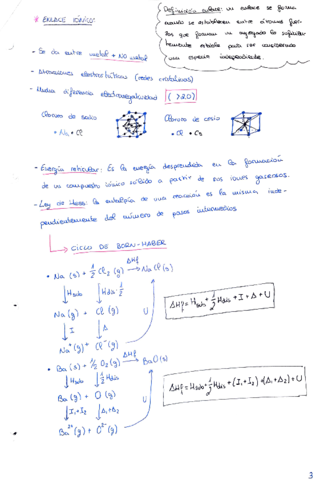 * ENLACE IÓNICO:
Definición enlace: un enlace se forma
cuando se establecen entre átomos fuer-
zas que forman un agregado lo suficien-
temente estable para ser considerado
una especie independiente.
- Se da entre metal + NO metal
- Atracciones electrostáticas (redes cristalinas)
- Mucha diferencia electronegatividad (>2.0)
Cloruro de sodio
• Na • Cl
Cloruro de cesio
• Cl • Cs
- Energía reticular: Es la energía desprendida en la formación
de un compuesto iónico sólido a partir de sus iones gaseosos.
- Ley de Hess: la entalpía de una reacción es la misma inde-
pendientemente del número de pasos intermedios.
CICLO DE BORN-HABER
• Na (s) + 1/2 Cl₂ (g) ΔHf → NaCl (s)
↓ Hsub ↓ Hdis · 1/2
Na (g) + Cl (g) U
↓ I ↓ A
Na⁺ (g) + Cl⁻ (g)
ΔHf = Hsub + 1/2 Hdis + I + A + U
• Ba (s) + 1/2 O₂ (g) ΔHf → BaO (s)
↓ Hsub ↓ 1/2 Hdis
Ba (g) + O (g) U
↓ I₁+I₂ ↓ A₁+A₂
Ba²⁺ (g) + O²⁻ (g)
ΔHf = Hsub + 1/2 Hdis + (I₁+I₂) + (A₁+A₂) + U
3